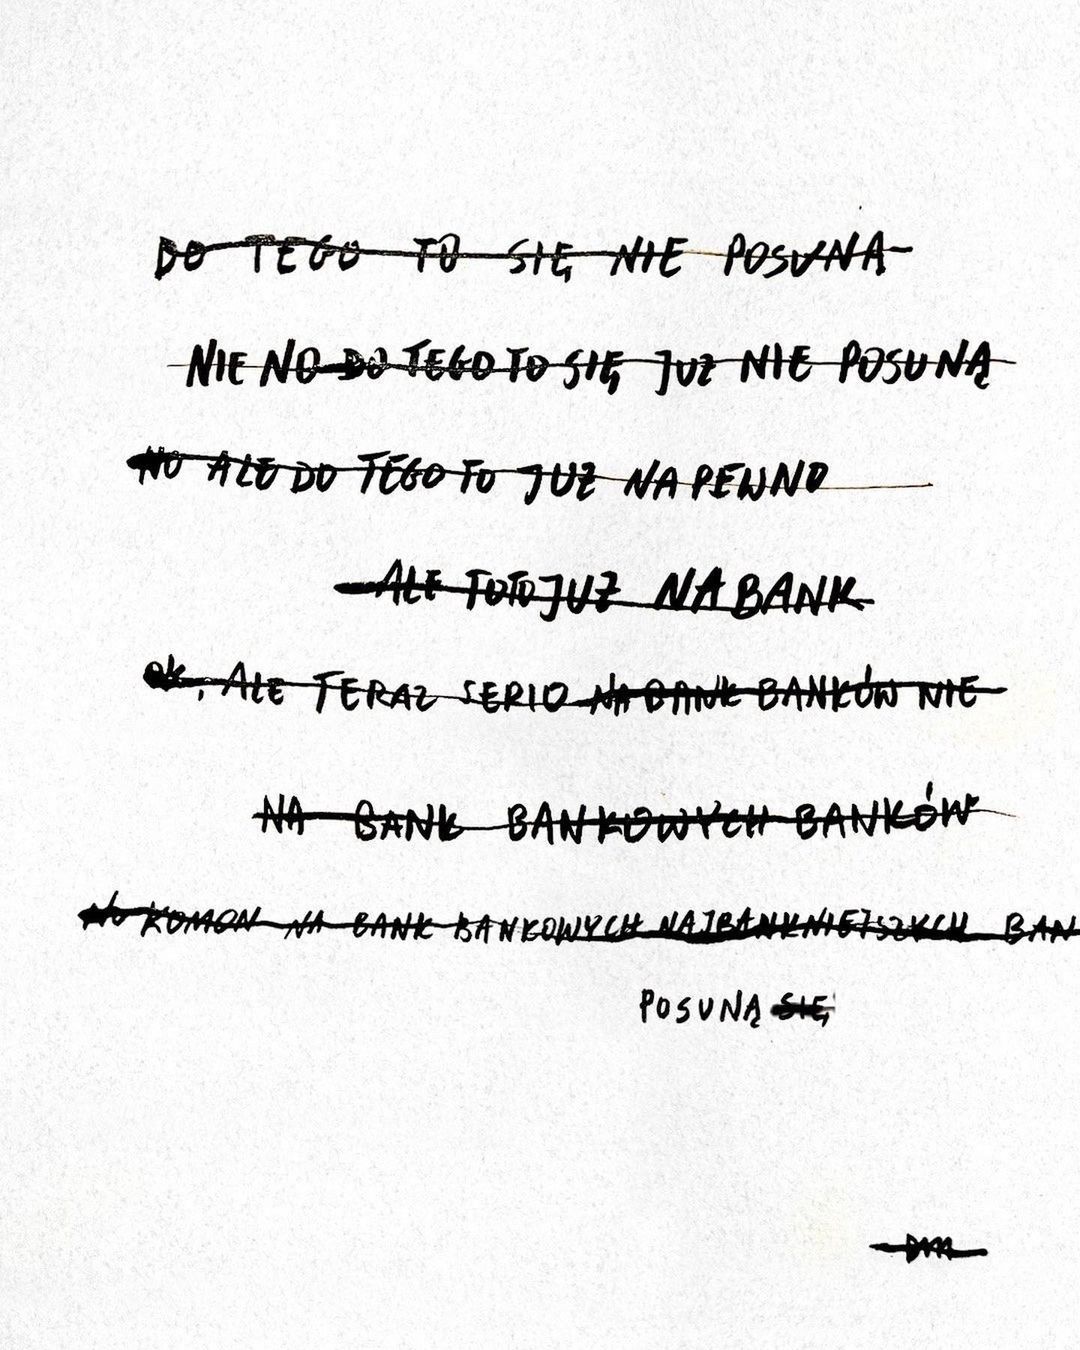 DO TEGO TO SIĘ NIE POSUNĄ
NIE NO DO TEGO TO SIĘ JUŻ NIE POSUNĄ
NO ALE DO TEGO TO JUŻ NA PEWNO
ALE TO TO JUŻ NA BANK
OK, ALE TERAZ SERIO NA BANK BANKÓW NIE
NA BANK BANKOWYCH BANKÓW
NO KOMON NA BANK BANKOWYCH NAJBANKNIEJSZYCH BAN
POSUNĄ SIĘ
DM